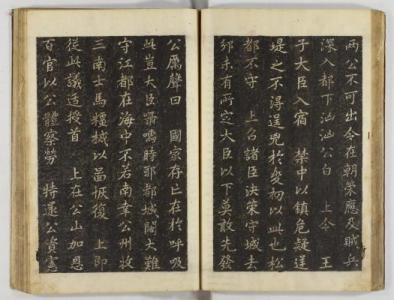 兩公不可出今在朝策應及賊兵
深入都下洶洶公白 上令 王
子大臣入宿 禁中以鎮危疑逆
瑅之不得逞兇於初以此也松
都不守 上召諸臣決策守城去
邠未有所定大臣以下莫敢先發
公厲聲曰 國家存亡在於呼吸
此豈大臣時耶都城闊大難
守江都在海中不若南幸公州收
三南士馬糧械以啚恢復 上即
從此議适授首 上在公山加恩
百官以公體察勞 特還公資憲